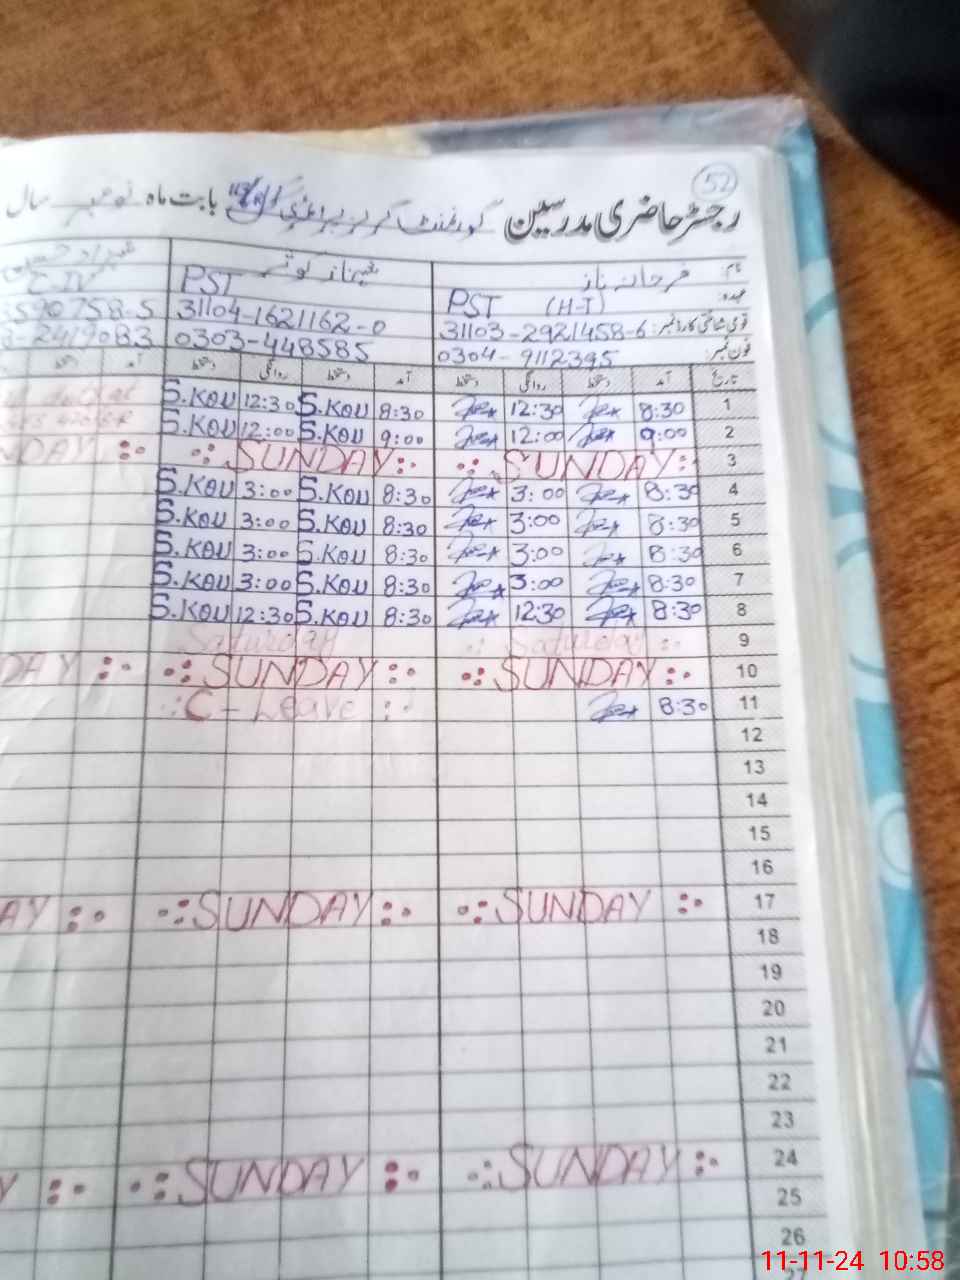 52
رجسٹر حاضری مدرسین گورنمنٹ گرلز بابت ماہ نومبر سال
نام: فرحانہ ناز شہناز کوثر
عہدہ: PST (H-T) PST
قومی شناختی کارڈ نمبر: 31103-2921458-6 31104-1621162-0 590758-5
فون نمبر: 0304-9112395 0303-448585 2419083
تاریخ آمد دستخط روانگی دستخط آمد دستخط روانگی دستخط آمد دستخط
S.KOU 12:30 S.KOU 8:30 12:30 8:30 1
S.KOU 12:00 S.KOU 9:00 12:00 9:00 2
NDAY SUNDAY SUNDAY 3
S.KOU 3:00 S.KOU 8:30 3:00 8:30 4
S.KOU 3:00 S.KOU 8:30 3:00 8:30 5
S.KOU 3:00 S.KOU 8:30 3:00 8:30 6
S.KOU 3:00 S.KOU 8:30 3:00 8:30 7
S.KOU 12:30 S.KOU 8:30 12:30 8:30 8
Saturday Saturday 9
DAY SUNDAY SUNDAY 10
C-Leave 8:30 11
12
13
14
15
16
AY SUNDAY SUNDAY 17
18
19
20
21
22
23
Y SUNDAY SUNDAY 24
25
26
27
11-11-24 10:58